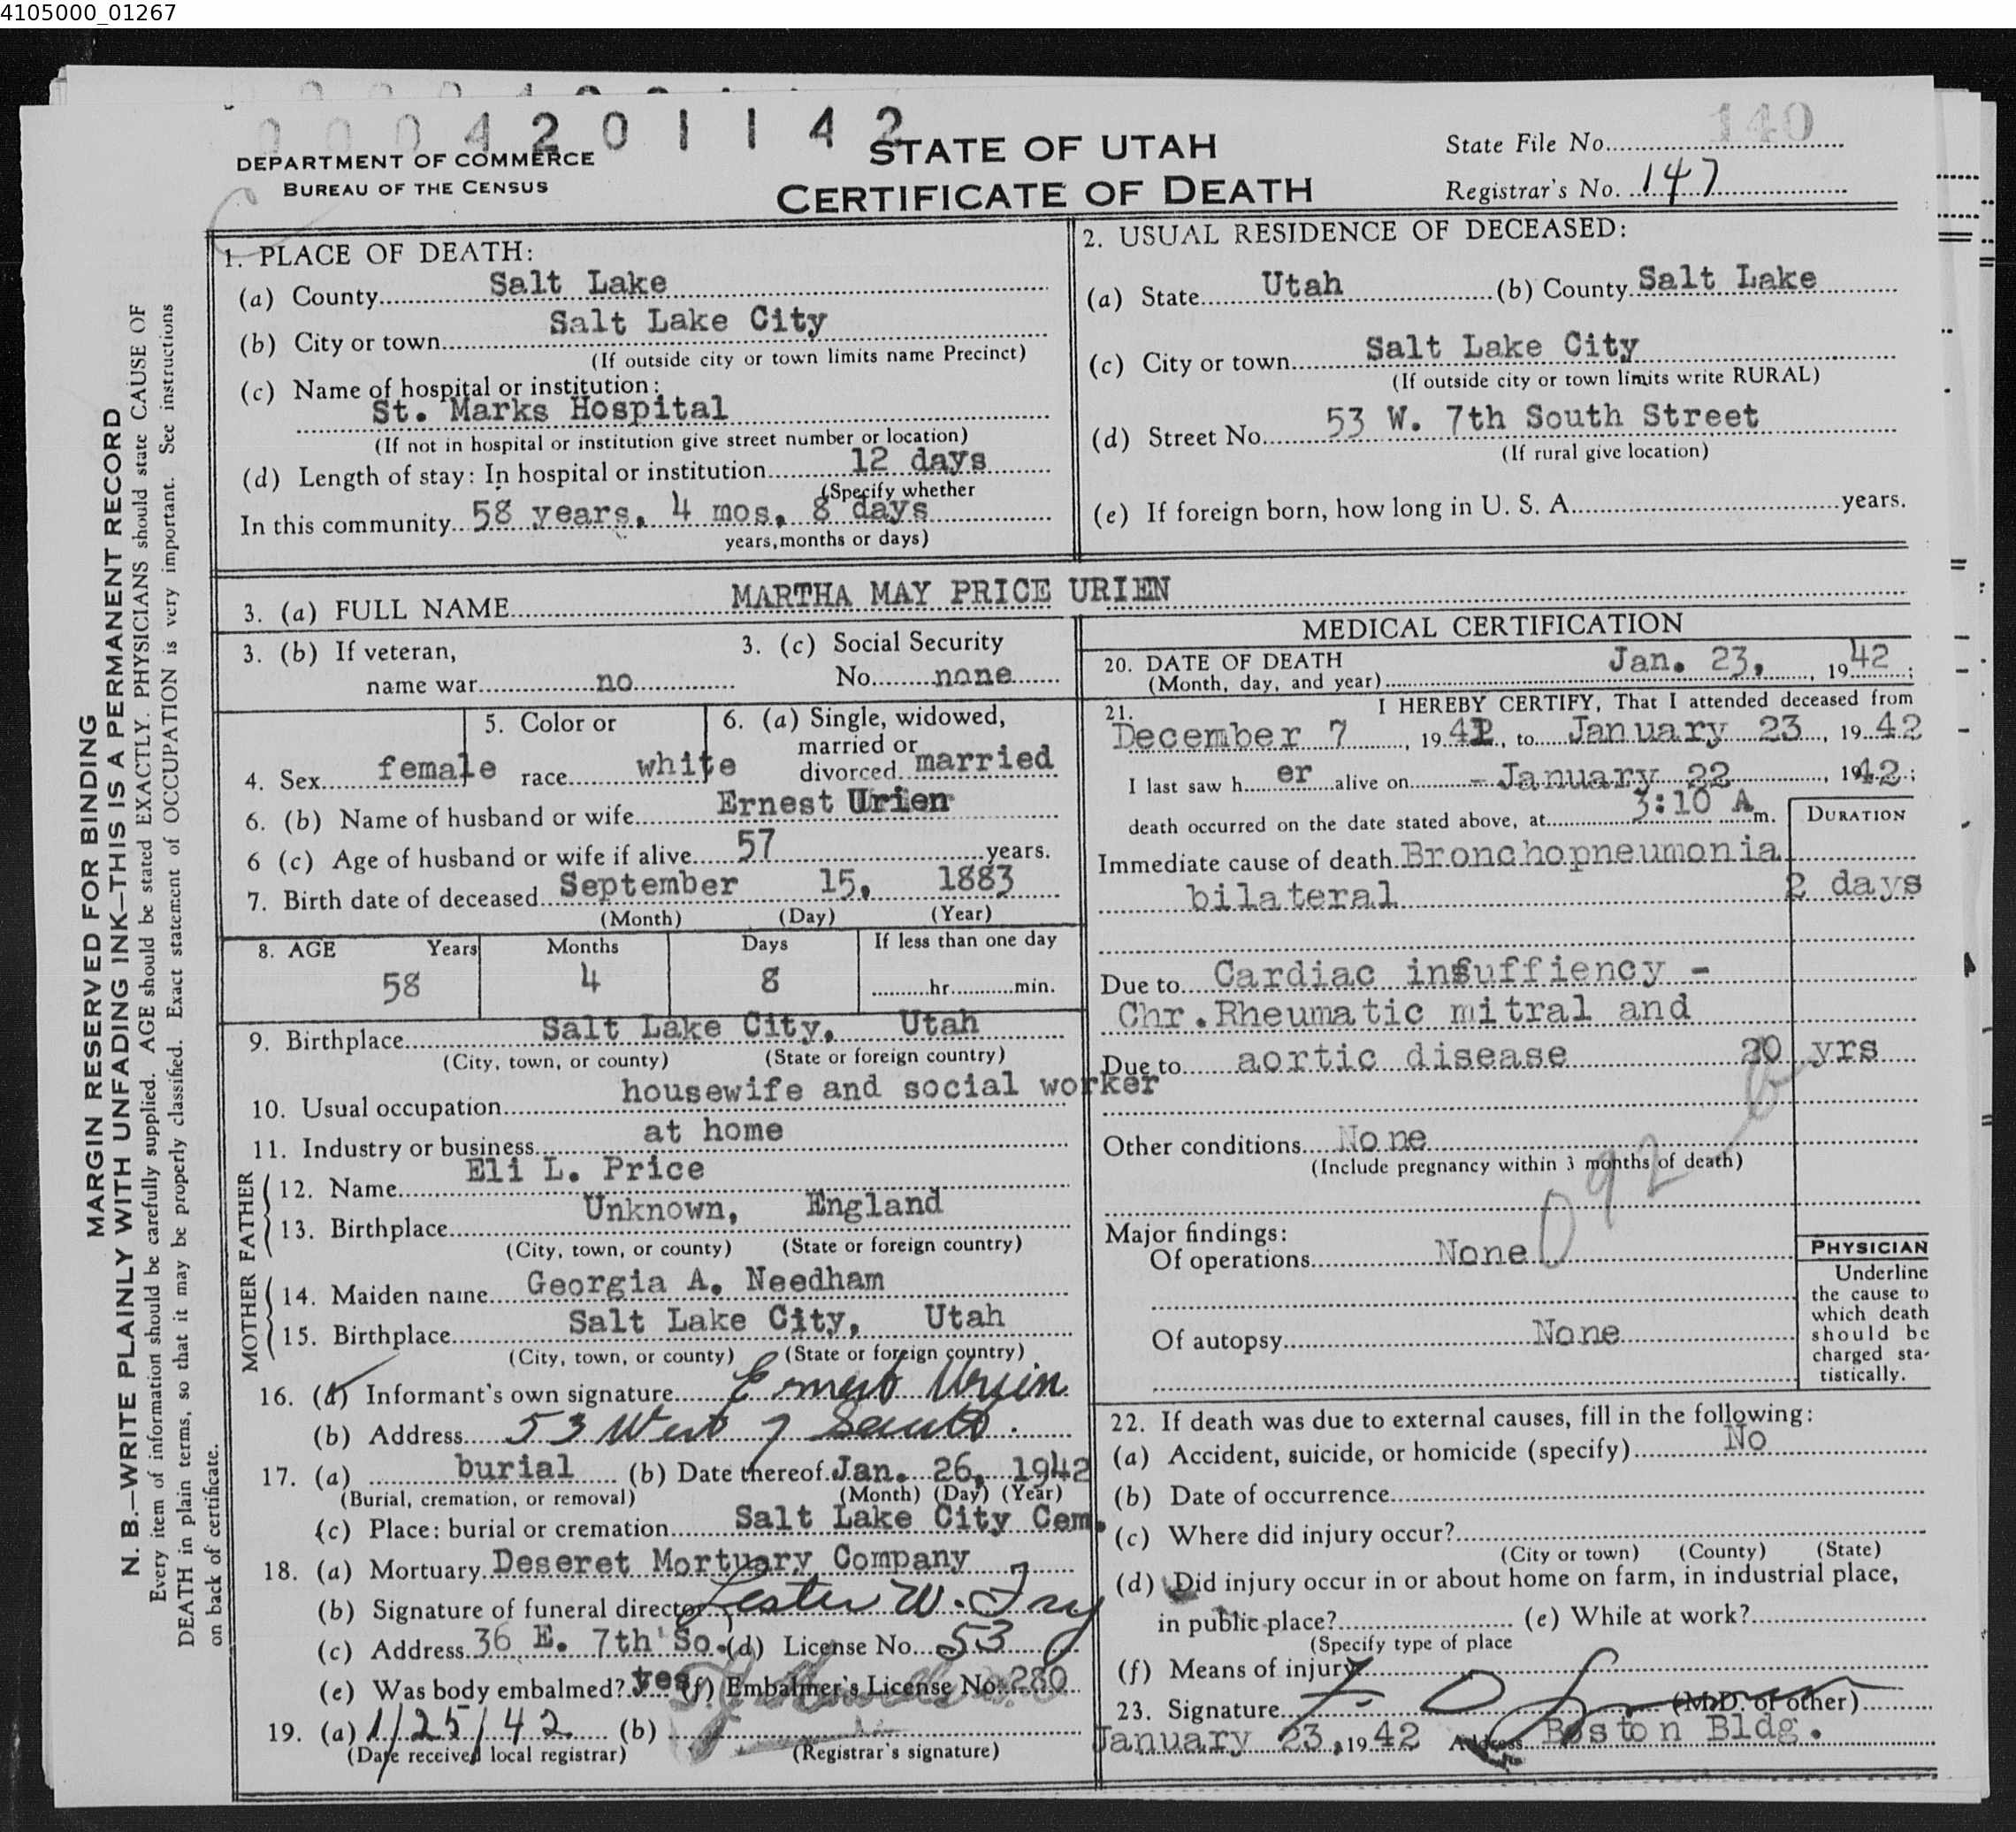 4105000_01267
0004201142
DEPARTMENT OF COMMERCE
BUREAU OF THE CENSUS
STATE OF UTAH
CERTIFICATE OF DEATH
State File No. 140
Registrar's No. 147
MARGIN RESERVED FOR BINDING
N. B.—WRITE PLAINLY WITH UNFADING INK—THIS IS A PERMANENT RECORD
Every item of information should be carefully supplied. AGE should be stated EXACTLY. PHYSICIANS should state CAUSE OF
DEATH in plain terms, so that it may be properly classified. Exact statement of OCCUPATION is very important. See instructions
on back of certificate.
1. PLACE OF DEATH:
(a) County Salt Lake
(b) City or town Salt Lake City
(If outside city or town limits name Precinct)
(c) Name of hospital or institution:
St. Marks Hospital
(If not in hospital or institution give street number or location)
(d) Length of stay: In hospital or institution 12 days
(Specify whether
In this community 58 years, 4 mos, 8 days
years, months or days)
2. USUAL RESIDENCE OF DECEASED:
(a) State Utah (b) County Salt Lake
(c) City or town Salt Lake City
(If outside city or town limits write RURAL)
(d) Street No. 53 W. 7th South Street
(If rural give location)
(e) If foreign born, how long in U. S. A. years.
3. (a) FULL NAME MARTHA MAY PRICE URIEN
3. (b) If veteran,
name war no
3. (c) Social Security
No. none
4. Sex female
5. Color or
race white
6. (a) Single, widowed,
married or
divorced married
6. (b) Name of husband or wife Ernest Urien
6 (c) Age of husband or wife if alive 57 years.
7. Birth date of deceased September 15, 1883
(Month) (Day) (Year)
8. AGE Years Months Days If less than one day
58 4 8 hr. min.
9. Birthplace Salt Lake City, Utah
(City, town, or county) (State or foreign country)
10. Usual occupation housewife and social worker
11. Industry or business at home
FATHER
12. Name Eli L. Price
13. Birthplace Unknown, England
(City, town, or county) (State or foreign country)
MOTHER
14. Maiden name Georgia A. Needham
15. Birthplace Salt Lake City, Utah
(City, town, or county) (State or foreign country)
16. (a) Informant's own signature Ernest Urien
(b) Address 53 West 7 South.
17. (a) burial (b) Date thereof Jan. 26, 1942
(Burial, cremation, or removal) (Month) (Day) (Year)
(c) Place: burial or cremation Salt Lake City Cem.
18. (a) Mortuary Deseret Mortuary Company
(b) Signature of funeral director Lester W. Fry
(c) Address 36 E. 7th So. (d) License No. 53
(e) Was body embalmed? yes (f) Embalmer's License No. 280
19. (a) 1/25/42 (b)
(Date received local registrar) (Registrar's signature)
MEDICAL CERTIFICATION
20. DATE OF DEATH
(Month, day, and year) Jan. 23, 1942;
21. I HEREBY CERTIFY, That I attended deceased from
December 7, 1941, to January 23, 1942
I last saw her alive on - January 22, 1942;
death occurred on the date stated above, at 3:10 A m.
DURATION
Immediate cause of death Bronchopneumonia
bilateral 2 days
Due to Cardiac insuffiency -
Chr. Rheumatic mitral and
Due to aortic disease 20 yrs
Other conditions None
(Include pregnancy within 3 months of death)
092 b
Major findings:
Of operations None
Of autopsy None
PHYSICIAN
Underline
the cause to
which death
should be
charged sta-
tistically.
22. If death was due to external causes, fill in the following:
(a) Accident, suicide, or homicide (specify) No
(b) Date of occurrence
(c) Where did injury occur?
(City or town) (County) (State)
(d) Did injury occur in or about home on farm, in industrial place,
in public place? (e) While at work?
(Specify type of place
(f) Means of injury
23. Signature (M.D. or other)
January 23, 1942 Address Boston Bldg.